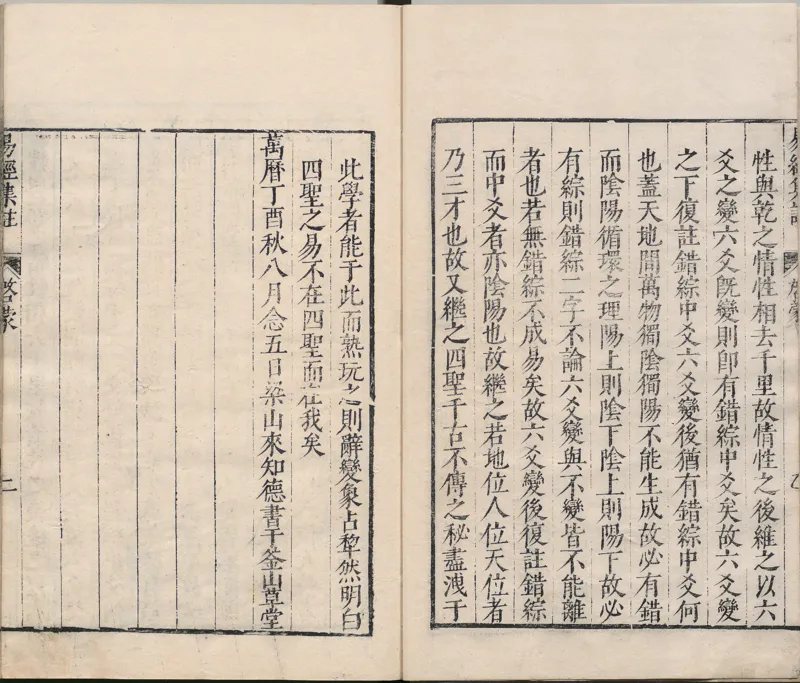 性與乾之情性相去千里故情性之後維之以六
爻之變六爻旣變則卽有錯綜中爻矣故六爻變
之下復註錯綜中爻六爻變後猶有錯綜中爻何
也蓋天地間萬物獨陰獨陽不能生成故必有錯
而陰陽循環之理陽上則陰下陰上則陽下故必
有綜則錯綜二字不論六爻變與不變皆不能離
者也若無錯綜不成易矣故六爻變後復註錯綜
而中爻者亦陰陽也故繼之若地位人位天位者
乃三才也故又繼之四聖千古不傳之秘盡洩于
此學者能于此而熟玩之則辭變象占犂然明白
四聖之易不在四聖而在我矣
萬曆丁酉秋八月念五日梁山來知德書于釜山草堂
易經集註
啓蒙
二